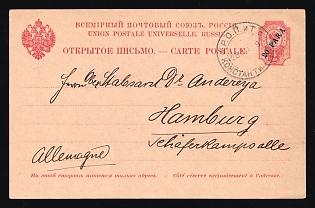 ВСЕМІРНЫЙ ПОЧТОВЫЙ СОЮЗЪ. РОССІЯ
UNION POSTALE UNIVERSELLE. RUSSIE
ОТКРЫТОЕ ПИСЬМО. — CARTE POSTALE.
20 PARA
Herrn Oberstabsarzt Dr. Andereya
Hamburg
Schäferkampsallee
Allemagne
На этой сторонѣ пишется только адресъ. — Côté réservé exclusivement à l'adresse.